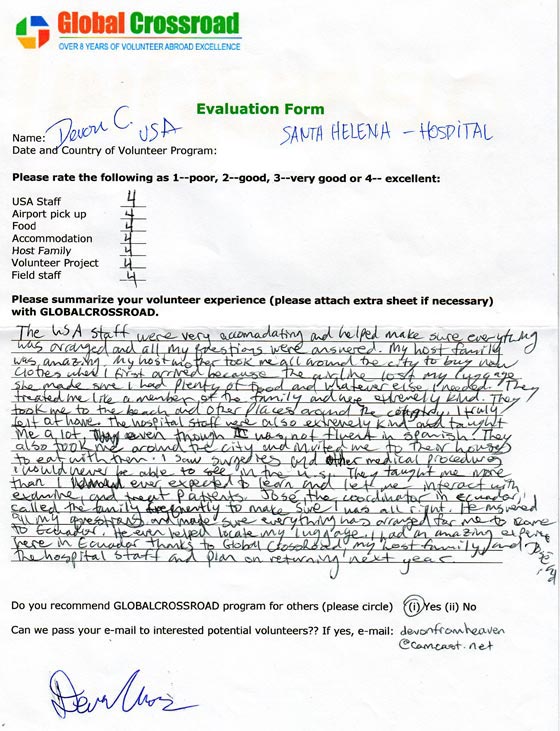 Global Crossroad
OVER 8 YEARS OF VOLUNTEER ABROAD EXCELLENCE
Evaluation Form
Name: Devon C. USA SANTA HELENA - HOSPITAL
Date and Country of Volunteer Program:
Please rate the following as 1--poor, 2--good, 3--very good or 4-- excellent:
USA Staff 4
Airport pick up 4
Food 4
Accommodation 4
Host Family 4
Volunteer Project 4
Field staff 4
Please summarize your volunteer experience (please attach extra sheet if necessary)
with GLOBALCROSSROAD.
The USA staff were very accomadating and helped make sure everything
was arranged and all my questions were answered. My host family
was amazing. My host mother took me all around the city to buy new
clothes when I first arrived because the airline lost my luggage.
She made sure I had plenty of food and whatever else I needed. They
treated me like a member of the family and were extremely kind. They
took me to the beach and other places around the country. I truly
felt at home. The hospital staff were also extremely kind and taught
me a lot, even though I was not fluent in Spanish. They
also took me around the city and invited me to their houses
to eat with them. I saw surgeries and other medical procedures
I would never be able to see in the U.S. They taught me more
than I ever expected to learn and let me interact with
examine, and treat patients. Jose, the coordinator in ecuador,
called the family frequently to make sure I was all right. He answered
all my questions and made sure everything was arranged for me to come
to Ecuador. He even helped locate my luggage. I had an amazing
here in Ecuador thanks to Global Crossroad, my host family, and
the hospital staff and plan on returning next year.
Do you recommend GLOBALCROSSROAD program for others (please circle) (i) Yes (ii) No
Can we pass your e-mail to interested potential volunteers?? If yes, e-mail: devonfromheaven
@comcast.net